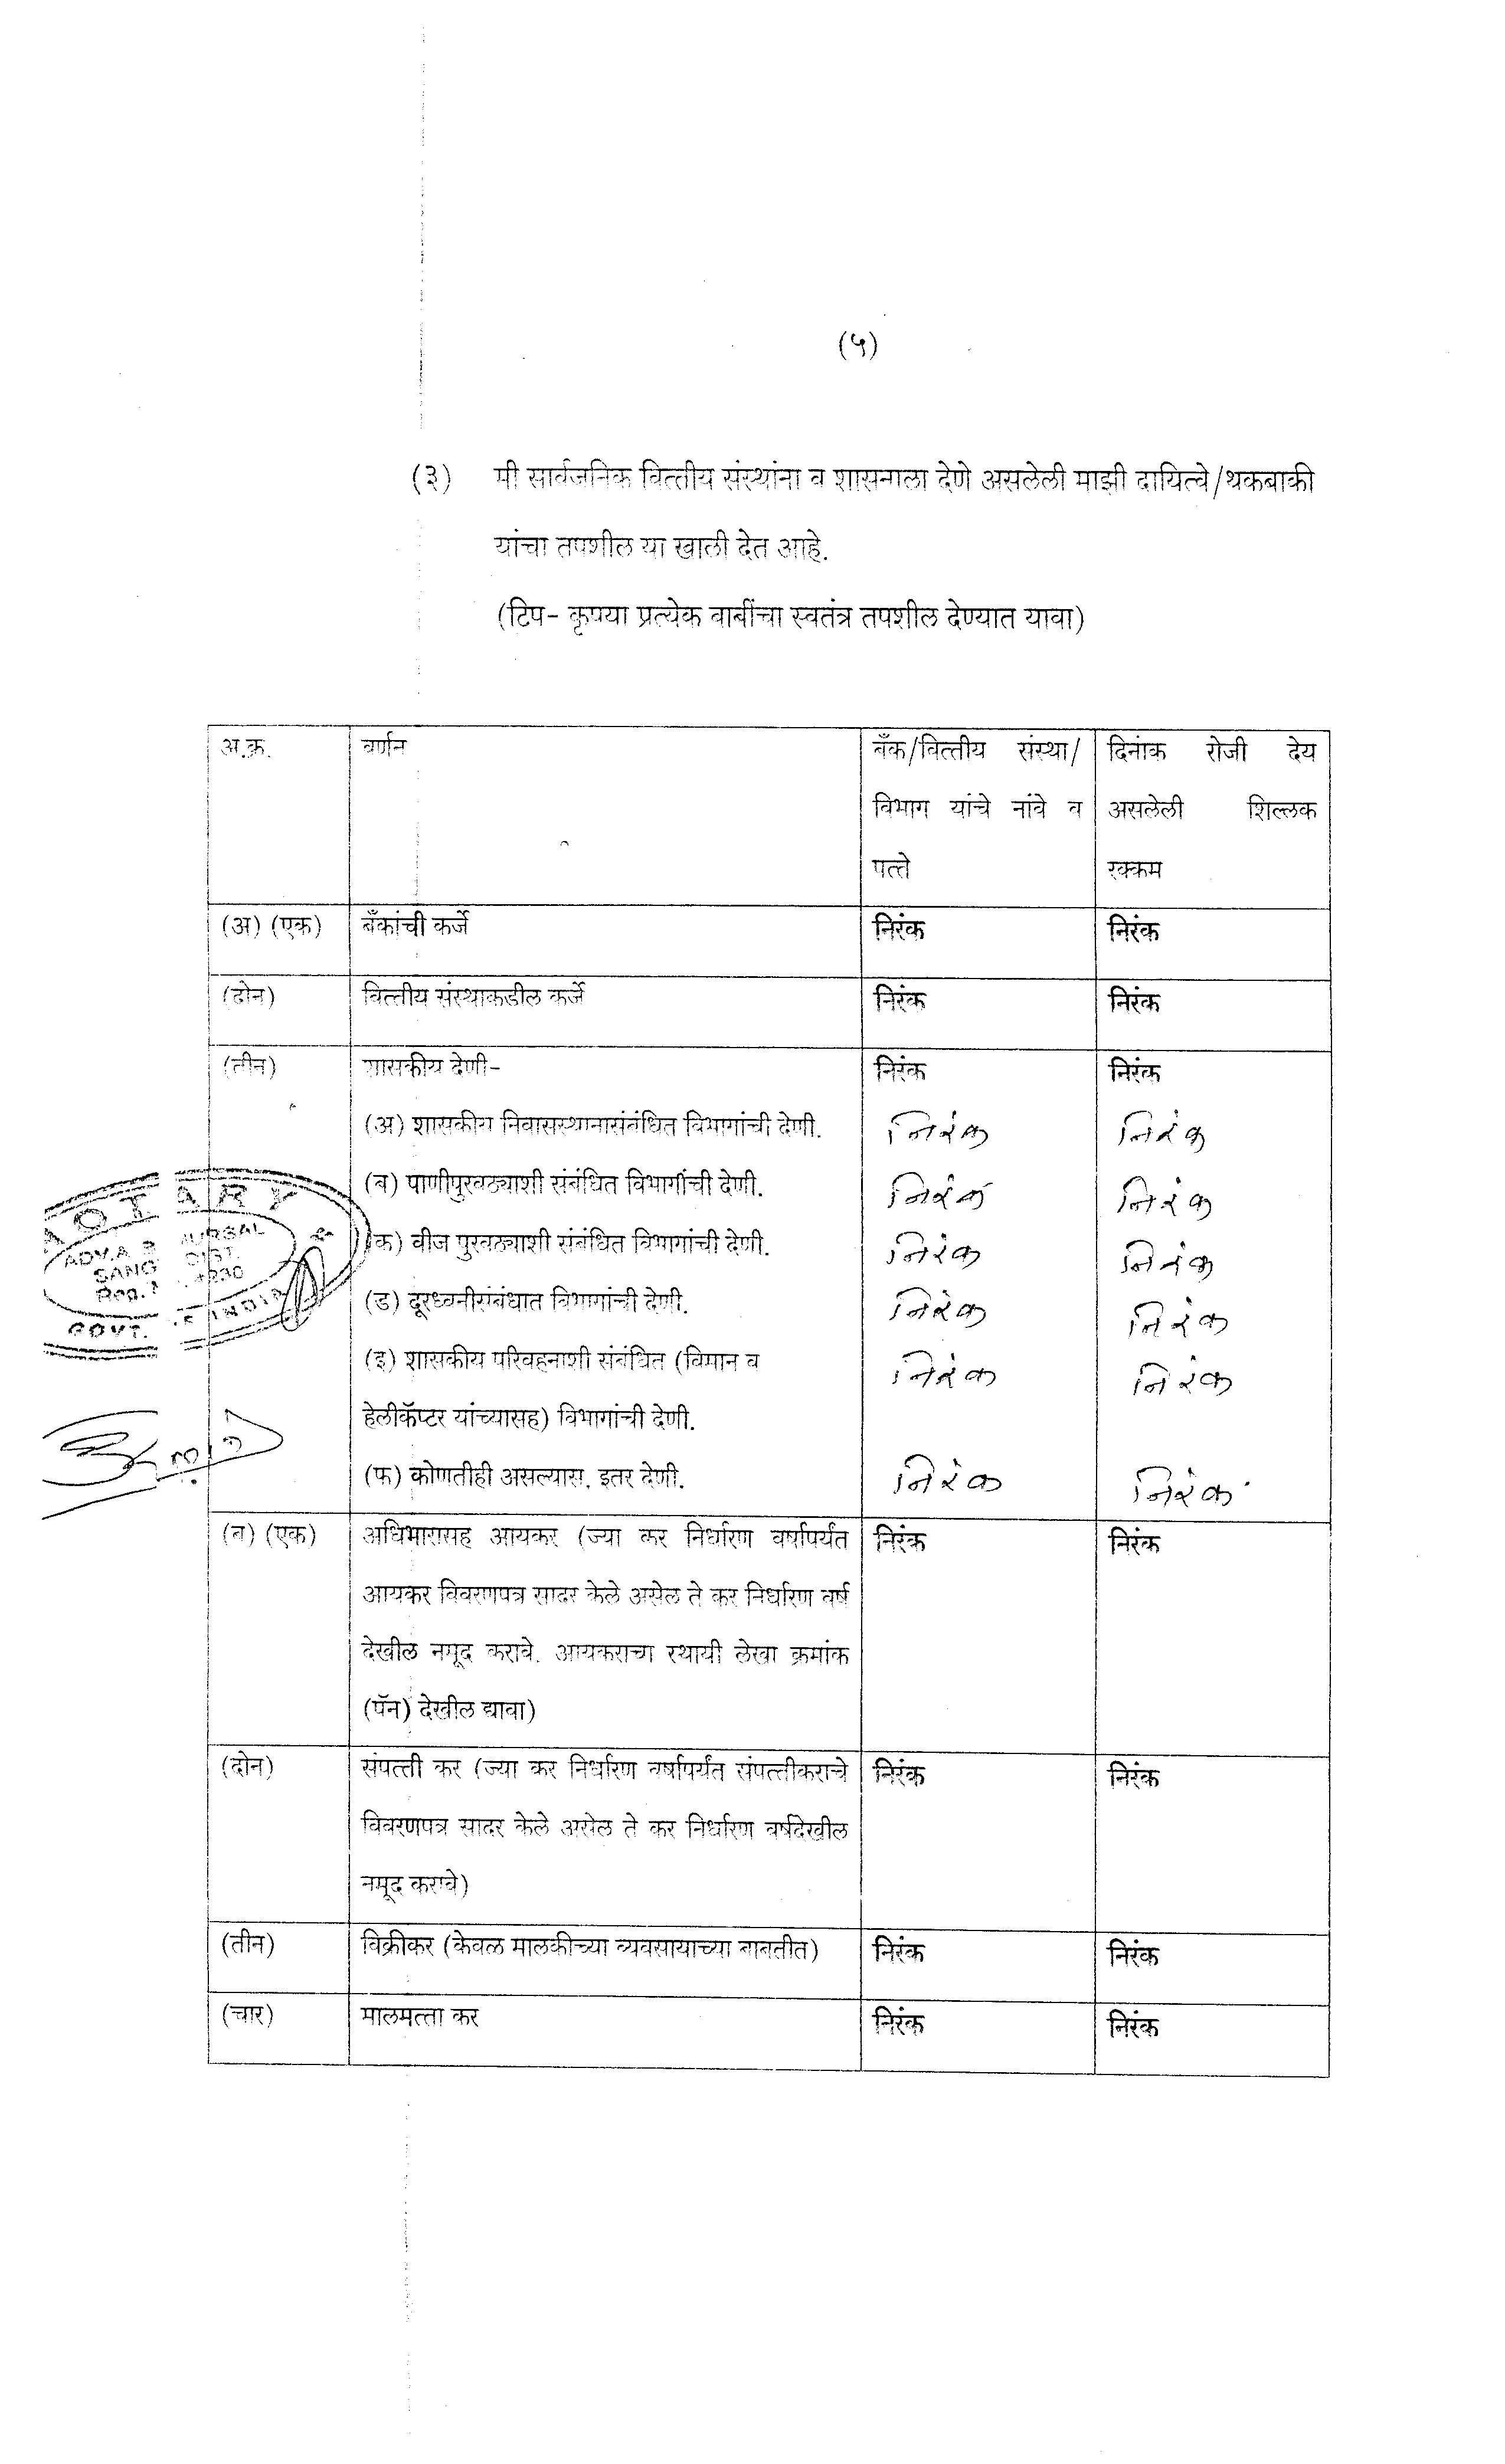 (५)
(३) मी सार्वजनिक वित्तीय संस्थांना व शासनाला देणे असलेली माझी दायित्वे/थकबाकी
यांचा तपशील या खाली देत आहे.
(टिप- कृपया प्रत्येक बाबींचा स्वतंत्र तपशील देण्यात यावा)
अ.क्र. वर्णन बँक/वित्तीय संस्था/ दिनांक रोजी देय
विभाग यांचे नांवे व असलेली शिल्लक
पत्ते रक्कम
(अ) (एक) बँकांची कर्जे निरंक निरंक
(दोन) वित्तीय संस्थाकडील कर्जे निरंक निरंक
(तीन) शासकीय देणी- निरंक निरंक
(अ) शासकीय निवासस्थानासंबंधित विभागांची देणी. निरंक निरंक
(ब) पाणीपुरवठ्याशी संबंधित विभागांची देणी. निरंक निरंक
(क) वीज पुरवठ्याशी संबंधित विभागांची देणी. निरंक निरंक
(ड) दूरध्वनीसंबंधात विभागांची देणी. निरंक निरंक
(इ) शासकीय परिवहनाशी संबंधित (विमान व निरंक निरंक
हेलीकॅप्टर यांच्यासह) विभागांची देणी.
(फ) कोणतीही असल्यास, इतर देणी. निरंक निरंक
(ब) (एक) अधिभारासह आयकर (ज्या कर निर्धारण वर्षापर्यंत निरंक निरंक
आयकर विवरणपत्र सादर केले असेल ते कर निर्धारण वर्ष
देखील नमूद करावे. आयकराचा स्थायी लेखा क्रमांक
(पॅन) देखील द्यावा)
(दोन) संपत्ती कर (ज्या कर निर्धारण वर्षापर्यंत संपत्तीकराचे निरंक निरंक
विवरणपत्र सादर केले असेल ते कर निर्धारण वर्षदेखील
नमूद करावे)
(तीन) विक्रीकर (केवळ मालकीच्या व्यवसायाच्या बाबतीत) निरंक निरंक
(चार) मालमत्ता कर निरंक निरंक
OTARY
ADV.A
SANG DIST.
Reg.
GOVT. INDIA